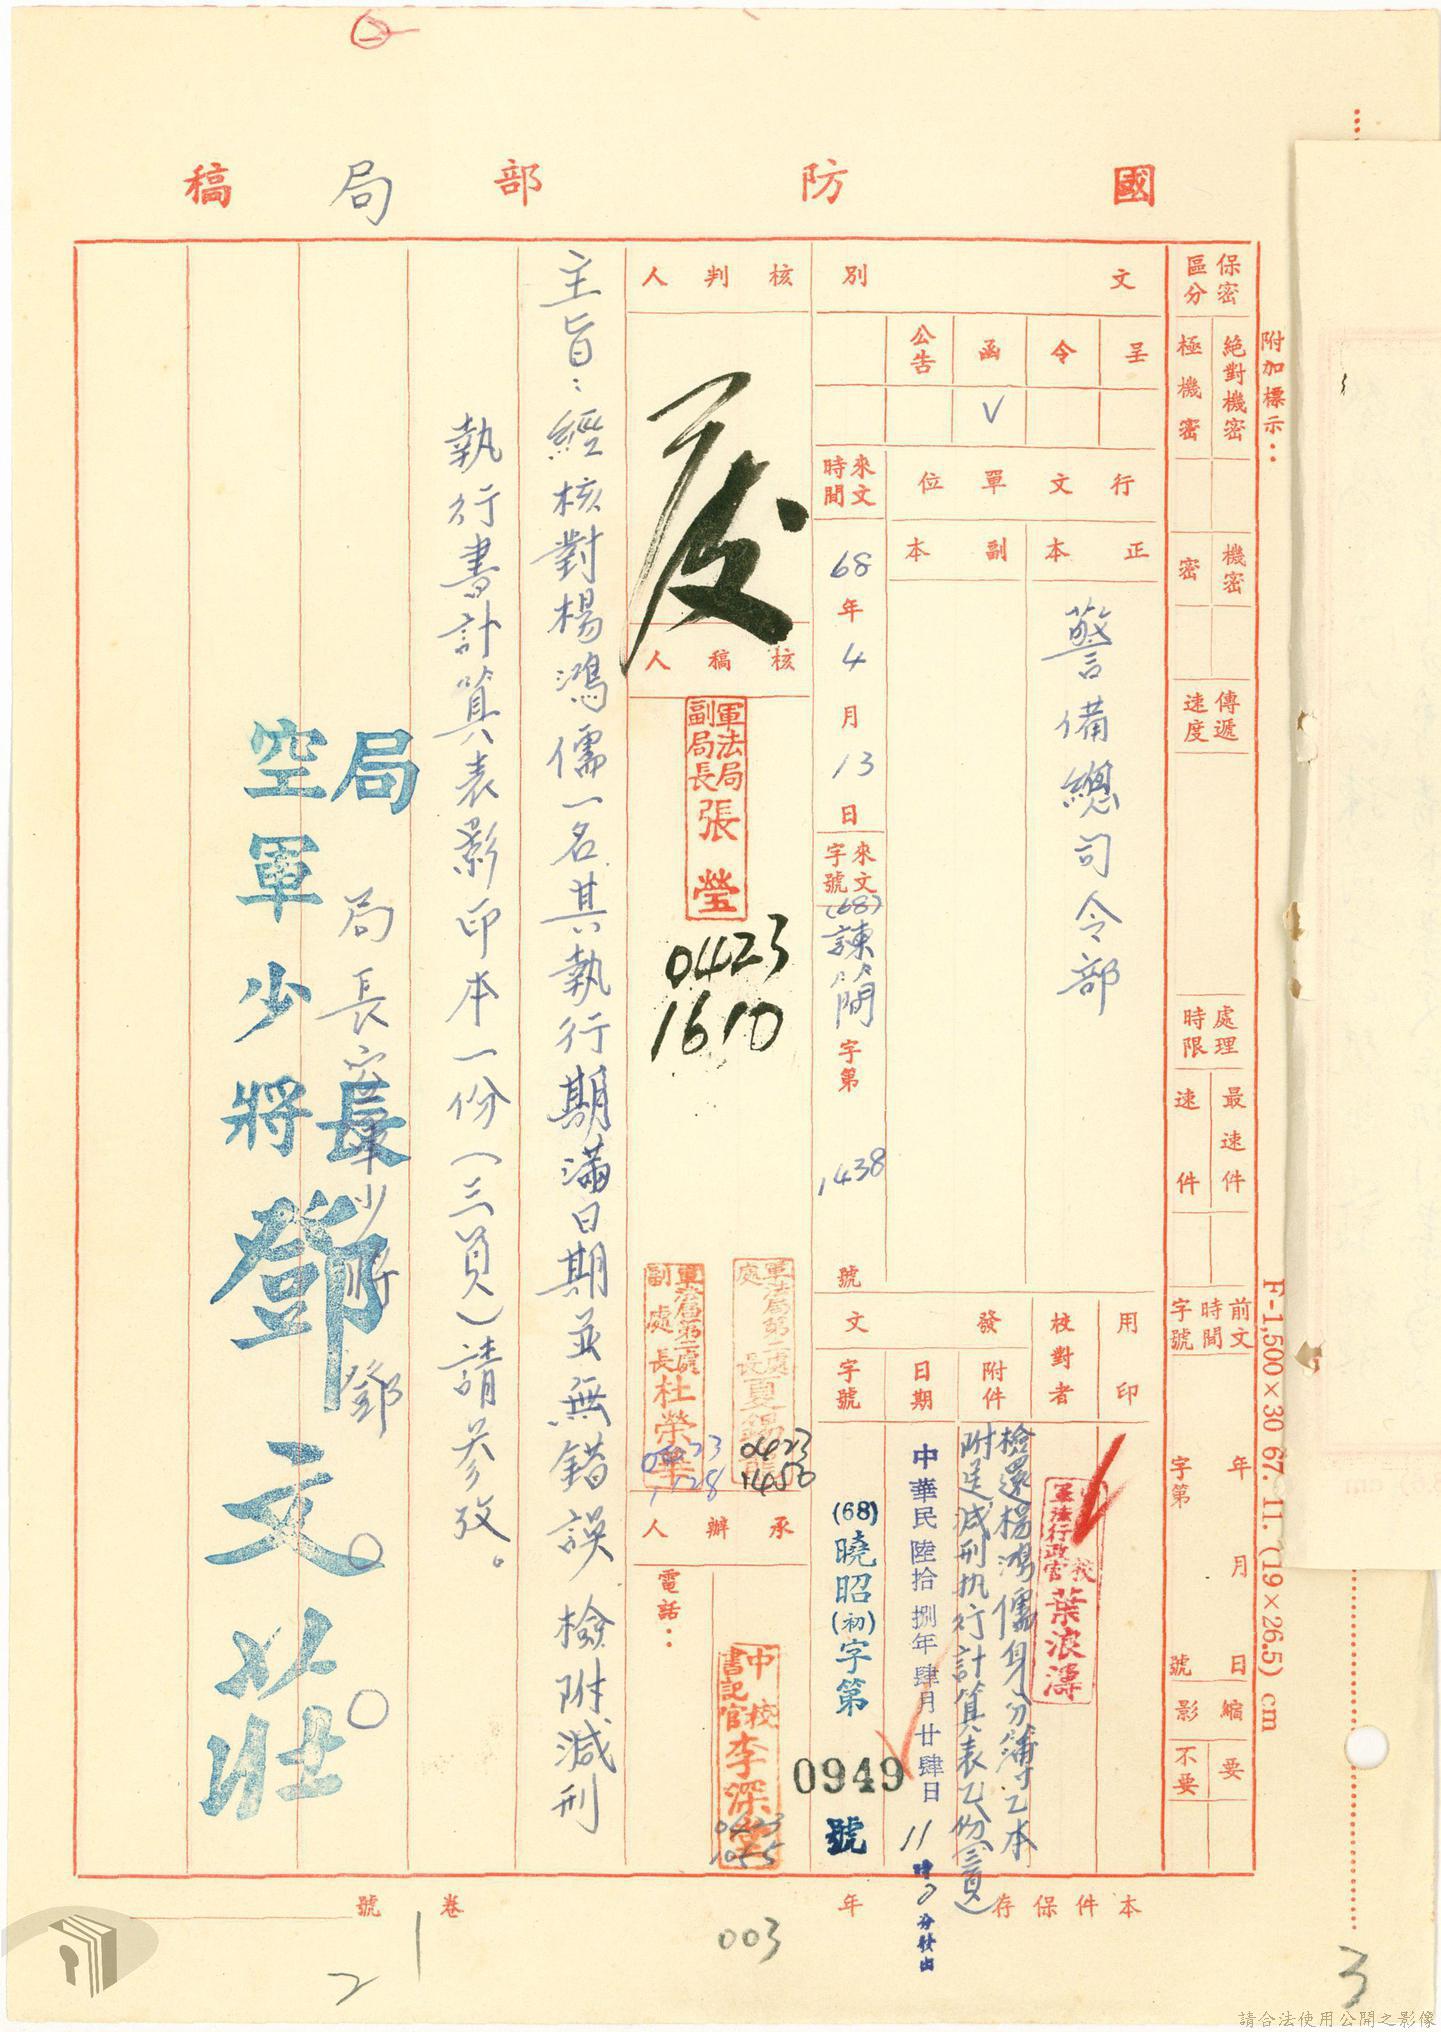 國防部局稿
附加標示：
保密區分
絕對機密
極機密
機密
密
傳遞速度
處理時限
最速件
速件
前文時間字號
年月日
字第號
縮影
要
不要
F-1,500×30 67. 11. (19×26.5) cm
文別
呈
令
函
公告
V
行文單位
正本
副本
警備總司令部
來文時間
68年4月13日
來文字號
(68)諫簡字第1438號
用印
校對者
軍法行政官 葉浪濤
發文
附件
檢還楊鴻儒身分簿乙本
附送減刑执行計算表乙份(三頁)
日期
中華民國陸拾捌年肆月廿肆日11時0分發出
字號
(68)曉昭(初)字第0949號
核判人
核稿人
軍法局副局長 張瑩
0423
1610
軍法局第二處處長 夏錫
0423
1450
軍法局第二處副處長 杜榮
0423
1128
承辦人
中校書記官 李深
0423
1055
電話：
主旨：經核對楊鴻儒一名其執行期滿日期並無錯誤 檢附減刑
執行書計算表影印本一份(三頁)請參攷。
局長空軍少將鄧○○
局長
空軍少將鄧文莊
本件保存 年
卷 號
003
1
2
3
請合法使用公開之影像